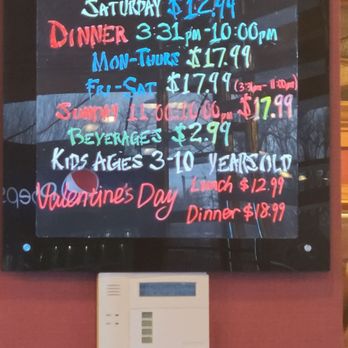 SATURDAY $12.99
DINNER 3:31pm-10:00pm
MON-THURS $17.99
FRI-SAT $17.99 (3:31pm-11:00pm)
SUNDAY 11:00-10:00pm $17.99
BEVERAGES $2.99
KIDS AGES 3-10 YEARS OLD
Valentine's Day Lunch $12.99
Dinner $18.99